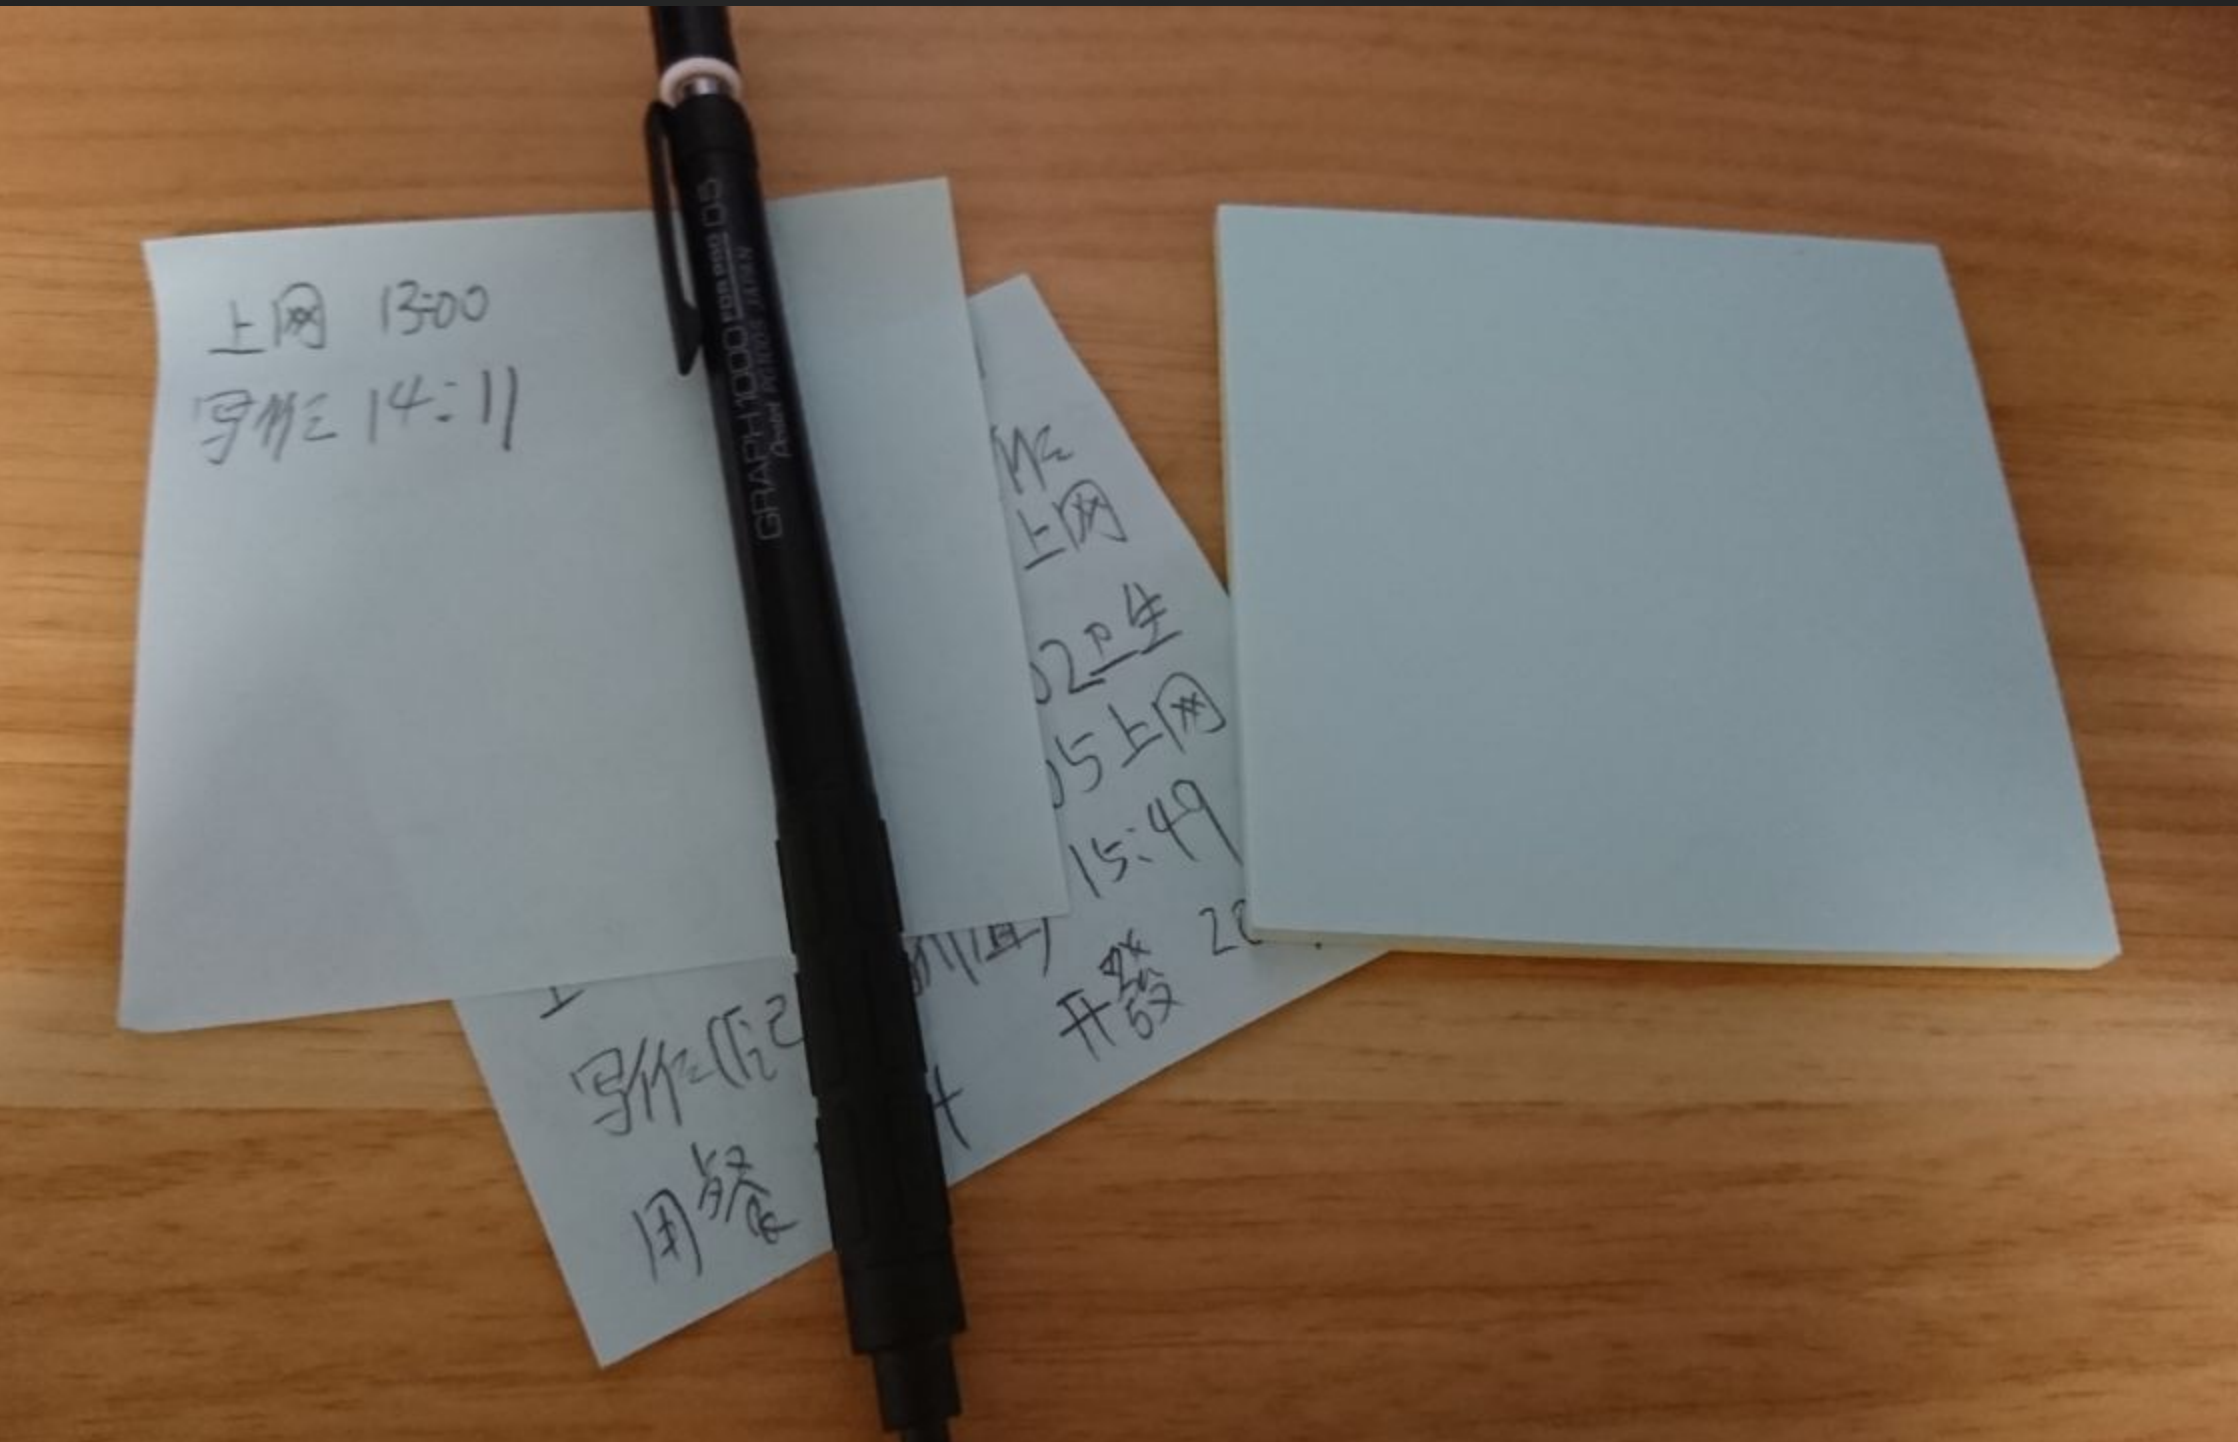 上网 13:00
写作 14:11
GRAPH 1000 FOR PRO 05
Pentel JAPAN
作
上网
02卫生
05上网
15:49
写作(记
开發
用餐